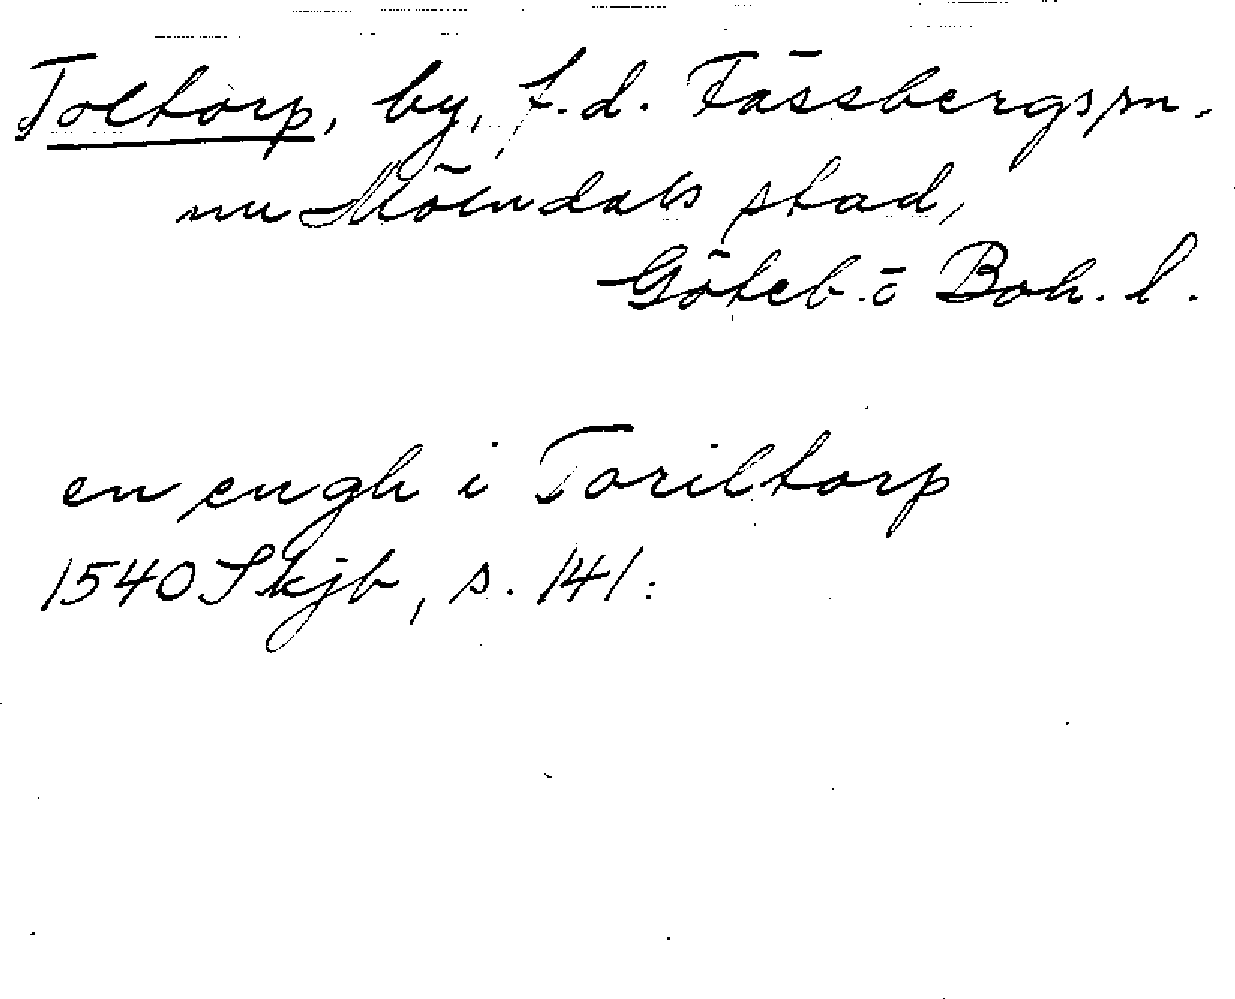 Toltorp, by, f.d. Fässbergs sn.
nu Mölndals stad,
Göteb. o Boh. l.
en engh i Toriltorp
1540 Skjb, s. 141.